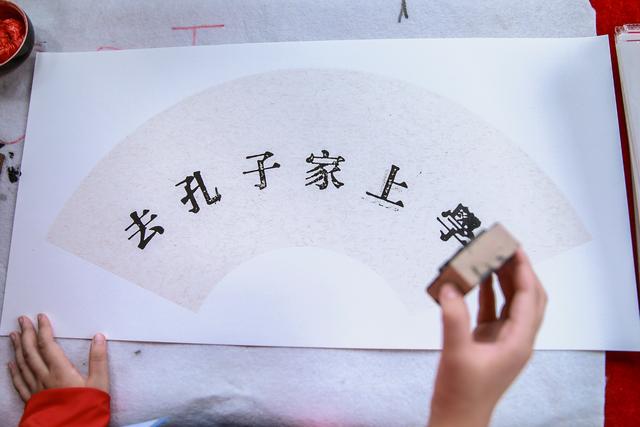 去孔子家上學